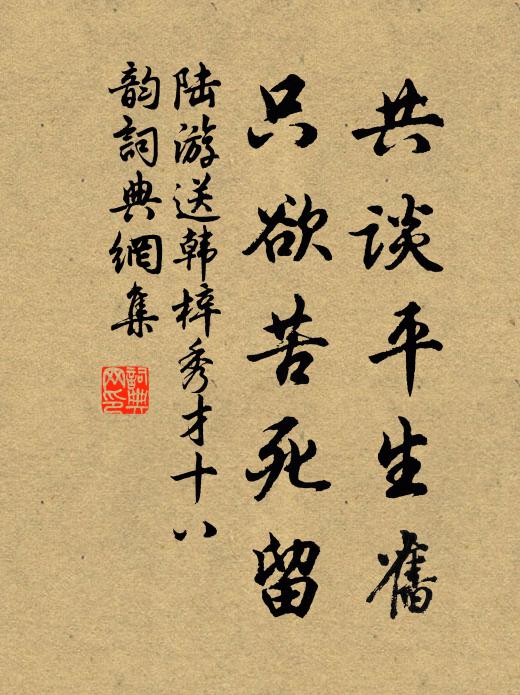 共談平生舊
只欲苦死留
陆游送韩梓秀才十八
韵詞典網集
詞典
网印